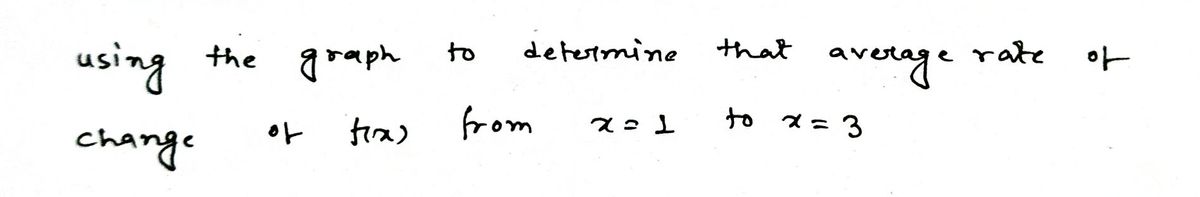 using the graph to determine that average rate of
change of f(x) from x = 1 to x = 3